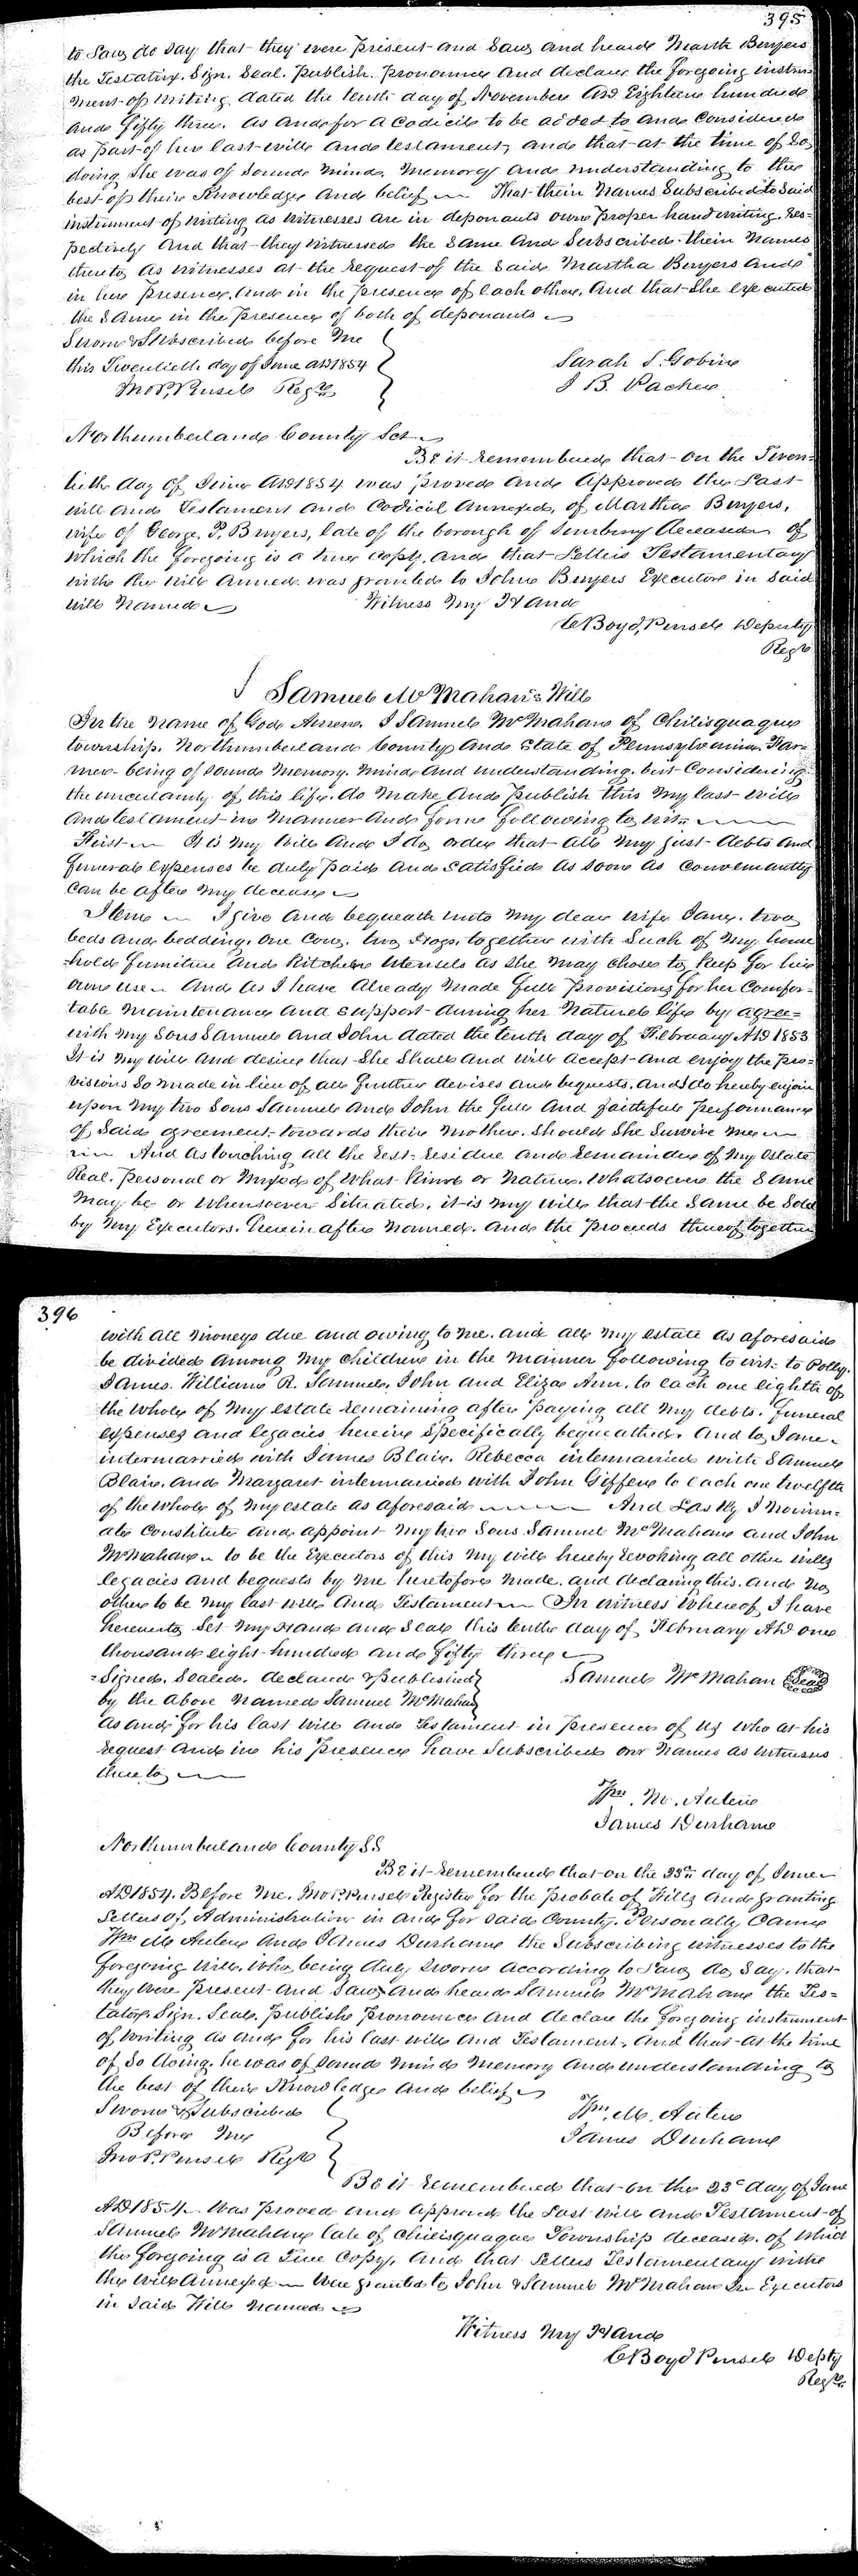 395
to Law, do say that they were present and saw and heard Marth Buyers
the Testatrix. Sign. Seal. publish. pronounce and declare the foregoing instru=
ment of writing dated the tenth day of November AD Eighteen hundred
and fifty three. as and for a Codicil to be added to and considered
as part of her last will and testament, and that at the time of so
doing she was of sound mind. memory and understanding to the
best of their Knowledge and belief That their names Subscribed to Said
instrument of writing as witnesses are in deponants own proper hand writing. Res=
pectively and that they witnessed the same and Subscribed their names
thereto as witnesses at the request of the said Martha Buyers and
in her presence, and in the presence of each other, and that she executed
the same in the presence of both of deponants
Sworn & Subscribed before me
this Twentieth day of June AD 1854
Jno P. Pursel Regr
Sarah S. Gobin
J B. Packer
Northumberland County Sct
Be it remembered that on the Twen=
tieth day of June AD 1854 was proved and approved the Last
will and Testament and Codicil annexed, of Martha Buyers,
wife of George. P. Buyers, late of the borough of Sunbury deceased of
which the foregoing is a true copy, and that Letters Testamentary
with the will annexed was granted to John Buyers Executor in said
will named
Witness my Hand
C Boyd, Pursel Deputy
Regr
Samuel McMahan's Will
In the name of God Amen. I Samuel McMahan of Chilisquaque
township. Northumberland County and State of Pennsylvania. Far=
mer being of sound memory. mind and understanding. but Considering
the uncertainty of this life. do make and publish this my last will
and testament in manner and form following to wit:
First It is my will and I do order that all my just debts and
funeral expenses be duly paid and satisfied as soon as conveniently
can be after my decease
Item I give and bequeath unto my dear wife Jane. two
beds and bedding. One Cow. two Hogs. together with Such of my house
hold furniture and Kitchen utensels as she may chose to keep for her
own use And as I have already made full provisions for her Comfor=
table maintenance and support during her natural life by agree=
with my sons Samuel and John dated the tenth day of February AD 1853
It is my will and desire that she shall and will accept and enjoy the pro=
visions so made in lieu of all further devises and bequests, and I do hereby enjoin
upon my two Sons Samuel and John the full and faithful performance
of said agreement towards their mother. should she survive me
And as touching all the rest. residue and remainder of my estate
Real. personal or mixed of what kind or nature. whatsoever the same
may be or whensoever situated. it is my will that the same be sold
by my Executors. herein after named. and the proceeds thereof together
396
with all moneys due and owing to me. and all my estate as aforesaid
be divided among my children in the manner following to wit: to Polly.
James. William R. Samuel. John and Eliza Ann. to each one eighth of
the whole of my estate remaining after paying all my debts. funeral
expenses and legacies herein specifically bequeathed. And to Jane
intermarried with James Blair. Rebecca intermarried with Samuel
Blair. and Margaret intermarried with John Giffen to each one twelfth
of the whole of my estate as aforesaid And Lastly I nomin=
ate Constitute and appoint my two Sons Samuel McMahan and John
McMahan to be the Executors of this my will hereby revoking all other wills
legacies and bequests by me heretofore made. and declaring this. and no
other to be my last will and Testament In witness whereof I have
hereunto set my Hand and Seal this tenth day of February AD one
thousand eight hundred and fifty three
Signed. Sealed. declared & published
by the above named Samuel McMahan
Samuel McMahan Seal
as and for his last will and Testament in presence of us who at his
request and in his presence have Subscribed our names as witnesses
thereto
Wm. M. Auten
James Durham
Northumberland County SS
Be it remembered that on the 23rd day of June
AD 1854. Before me. Jno P. Pursel Register for the probate of Wills and granting
Letters of, Administration in and for said County. Personally Came
Wm M Auten and James Durham the Subscribing witnesses to the
foregoing will. who being duly sworn according to Law, do say. that
they were present and saw and heard Samuel McMahan the Tes=
tator. Sign. Seal. publish pronounce and declare the foregoing instrument
of writing as and for his last will and Testament. and that at the time
of so doing. he was of sound mind memory and understanding to
the best of their Knowledge and belief
Sworn & Subscribed
Before me
Jno P. Pursel Regr
Wm. M. Auten
James Durham
Be it remembered that on the 23d day of June
AD 1854 was proved and approved the Last will and Testament of
Samuel McMahan late of Chilisquaque Township deceased. of which
the foregoing is a True Copy, and that Letters Testamentary with
the will annexed were granted to John & Samuel McMahan Executors
in said Will named
Witness my Hand
C Boyd Pursel Depty
Regr